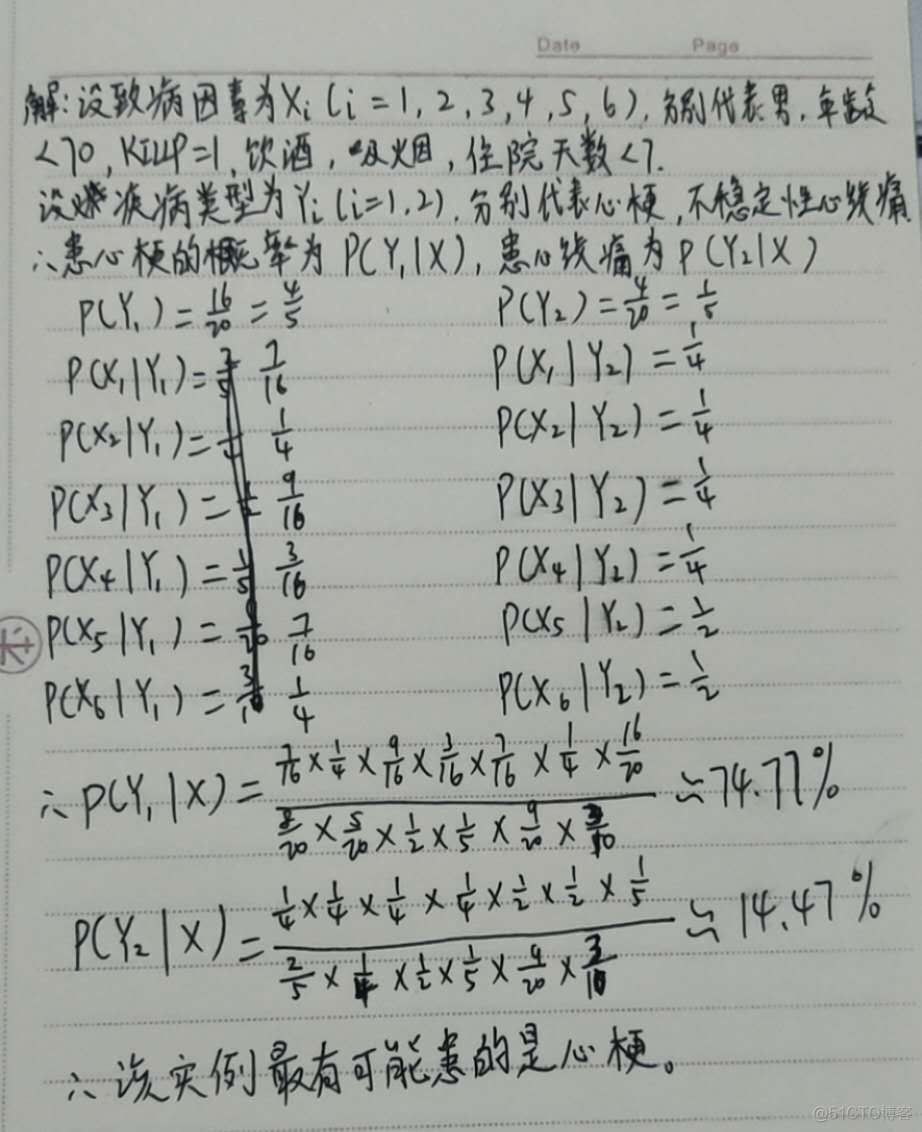 Date Page
解:设致病因素为Xi(i=1,2,3,4,5,6),分别代表男,年龄
<70,KILLP=1,饮酒,吸烟,住院天数<7.
设疾病类型为Yi(i=1,2),分别代表心梗,不稳定性心绞痛
∴患心梗的概率为P(Y₁|X),患心绞痛为P(Y₂|X)
P(Y₁)=16/20=4/5 P(Y₂)=4/20=1/5
P(X₁|Y₁)= 7/16 P(X₁|Y₂)=1/4
P(X₂|Y₁)= 1/4 P(X₂|Y₂)=1/4
P(X₃|Y₁)= 9/16 P(X₃|Y₂)=1/4
P(X₄|Y₁)= 3/16 P(X₄|Y₂)=1/4
P(X₅|Y₁)= 7/16 P(X₅|Y₂)=1/2
P(X₆|Y₁)= 1/4 P(X₆|Y₂)=1/2
∴P(Y₁|X)= 7/16×1/4×9/16×3/16×7/16×1/4×16/20 / 8/20×5/20×1/2×1/5×9/20×3/10 ≈74.77%
P(Y₂|X)= 1/4×1/4×1/4×1/4×1/2×1/2×1/5 / 2/5×1/4×1/2×1/5×9/20×3/10 ≈14.47%
∴该实例最有可能患的是心梗。
@51CTO博客